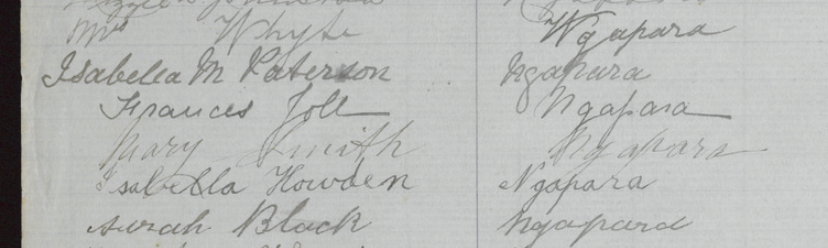 Mrs Whyte Ngapara
Isabella M Paterson Ngapara
Frances Joll Ngapara
Mary Smith Ngapara
Isabella Howden Ngapara
Sarah Black Ngapara